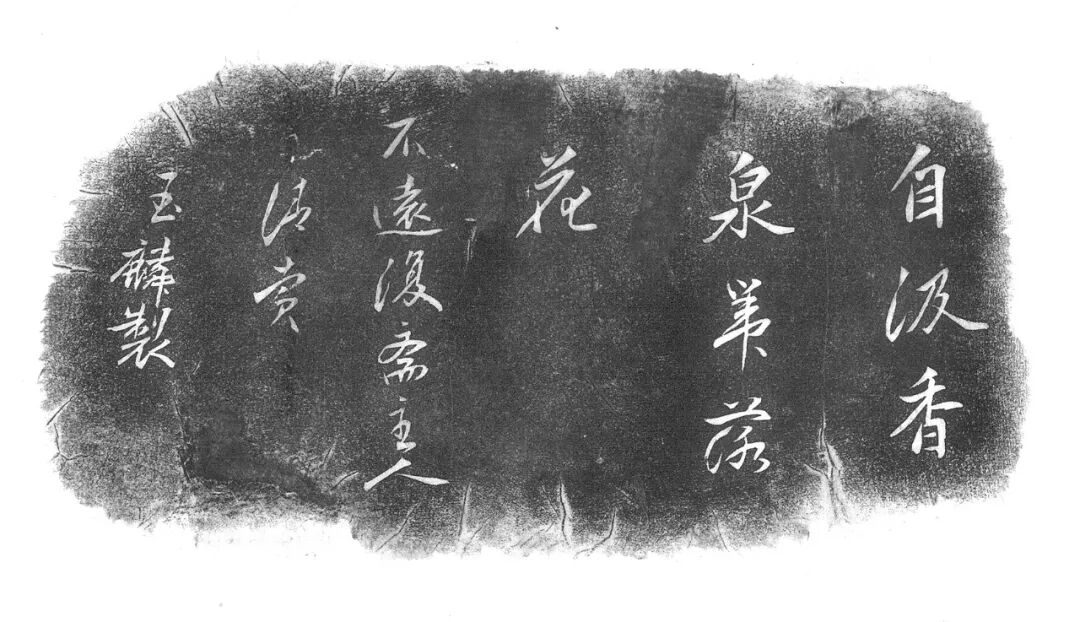 自汲香
泉帶落
花
不遠復斋主人
清賞
玉麟製